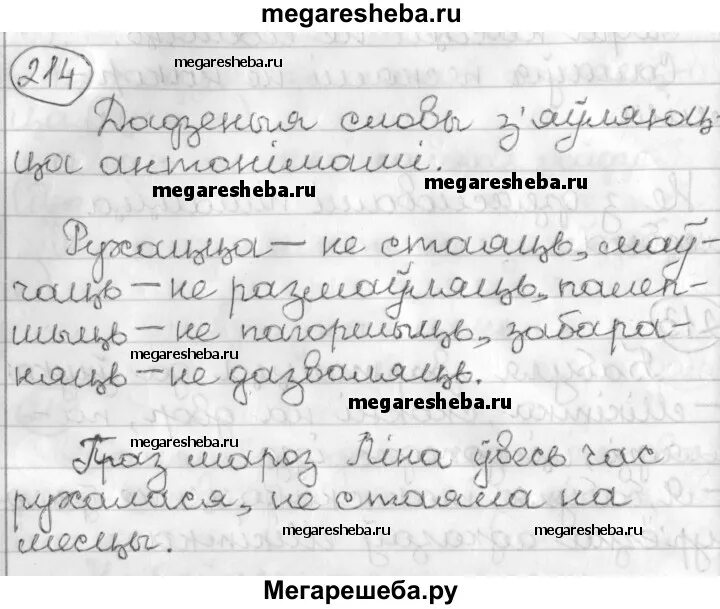 megaresheba.ru
214
megaresheba.ru
Дадзеныя словы з'яўляюц-
ца антонімамі.
megaresheba.ru
megaresheba.ru
Рухацца – не стаяць, маў-
чаць – не размаўляць, палеп-
шыць – не пагоршыць, забара-
megaresheba.ru
няць – не дазваляць.
megaresheba.ru
megaresheba.ru
Праз мароз Ліна ўвесь час
рухалася, не стаяла на
megaresheba.ru
megaresheba.ru
месцы.
Мегарешеба.ру